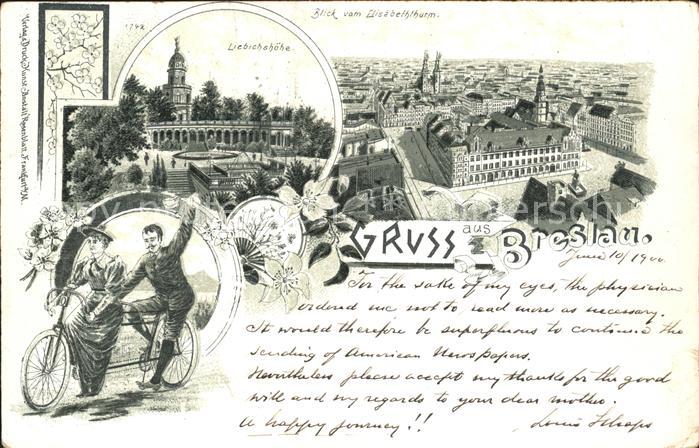 1742
Liebichshöhe.
Blick vom Elisabeththurm.
Verlag & Druck Kunst-Anstalt Rosenblatt, Frankfurt a/M.
GRUSS aus Breslau.
June 10/1900
For the sake of my eyes, the physician
ordered me not to read more as necessary.
It would therefore be superfluous to continue the
sending of American Newspapers.
Nevertheless please accept my thanks for the good
will and my regards to your dear mother.
A happy journey!!
Louis